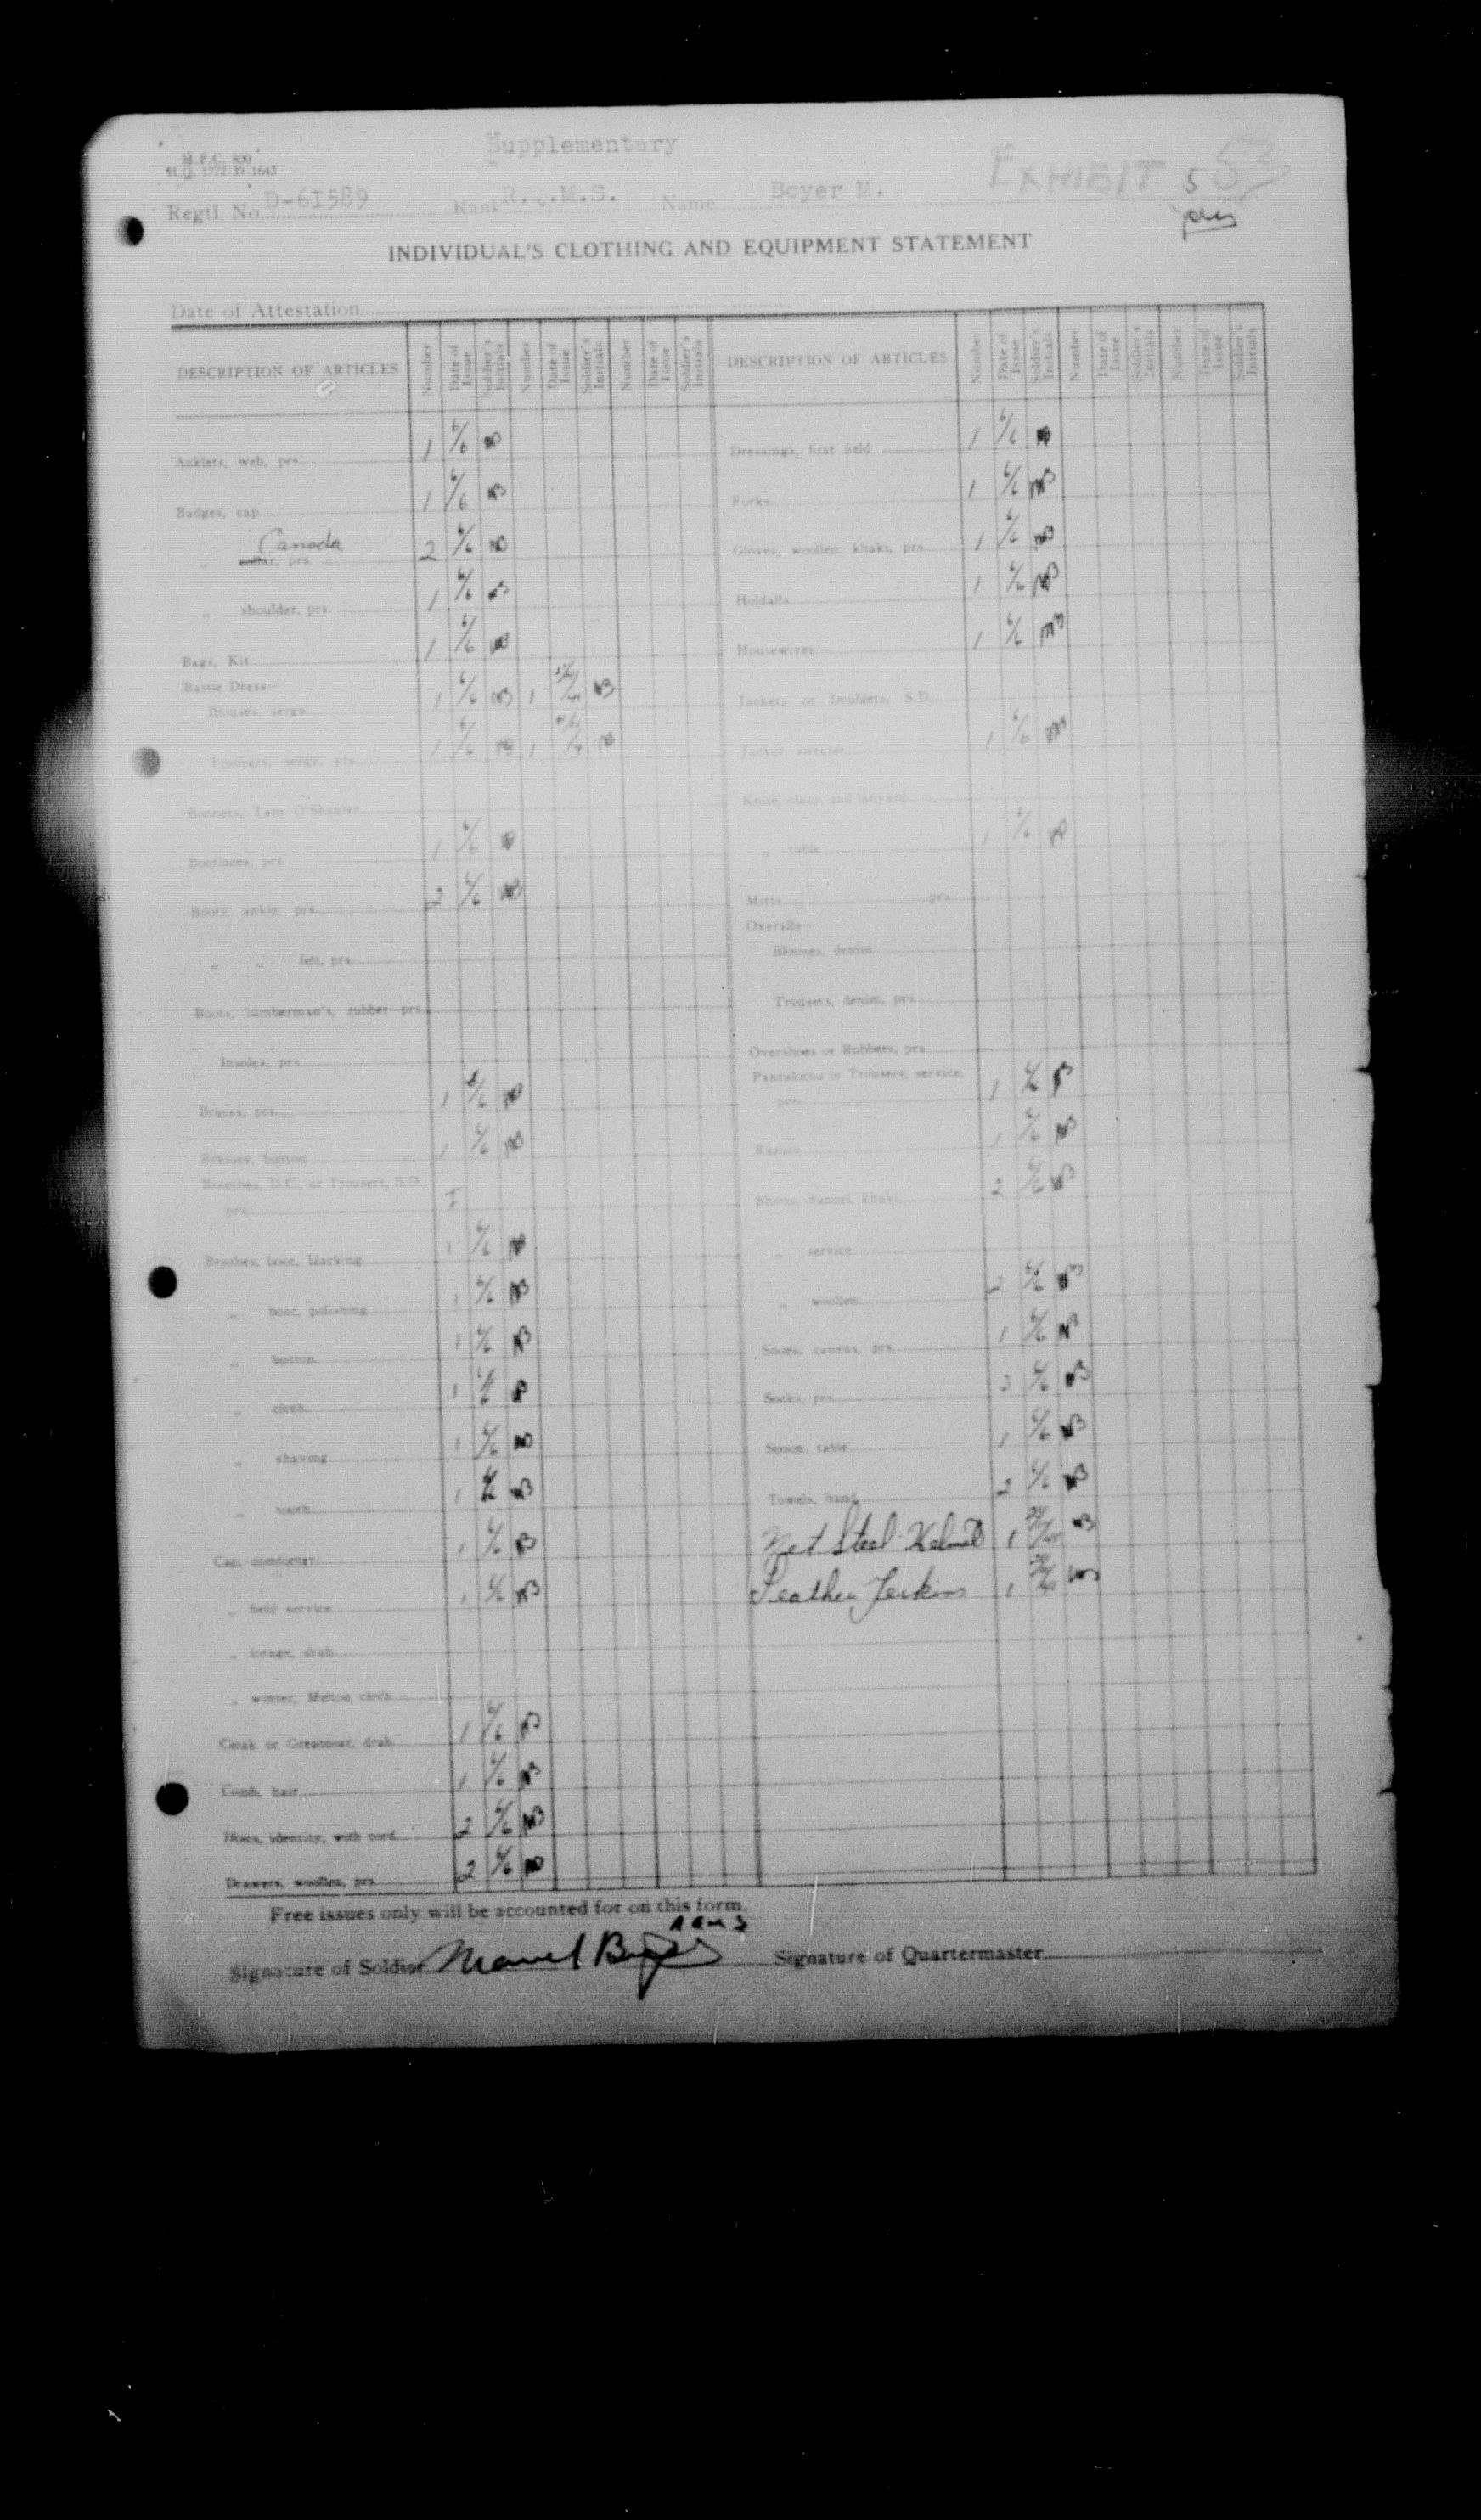 Supplementary
M.F.C. 800
H.Q. 1772-39-1643
EXHIBIT 5
Regtl. No. D-61589 Rank R.Q.M.S. Name Boyer M.
INDIVIDUAL'S CLOTHING AND EQUIPMENT STATEMENT
Date of Attestation
DESCRIPTION OF ARTICLES Number Date of Issue Soldier's Initials Number Date of Issue Soldier's Initials Number Date of Issue Soldier's Initials DESCRIPTION OF ARTICLES Number Date of Issue Soldier's Initials Number Date of Issue Soldier's Initials Number Date of Issue Soldier's Initials
Anklets, web, prs. 1 6/6 MB
Badges, cap 1 6/6 MB
Canada
„ collar, prs. 2 6/6 MB
„ shoulder, prs. 1 6/6 MB
Bags, Kit 1 6/6 MB
Battle Dress—
Blouses, serge 1 6/6 MB 1 MB
Trousers, serge, prs. 1 6/6 MB 1 MB
Bonnets, Tam O'Shanter
Bootlaces, prs. 1 6/6 MB
Boots, ankle, prs. 2 6/6 MB
„ „ felt, prs.
Boots, lumberman's, rubber prs.
Insoles, prs.
Braces, prs. 1 6/6 MB
Brasses, button 1 6/6 MB
Breeches, D.C., or Trousers, S.D.,
prs.
Brushes, boot, blacking 1 6/6 MB
„ boot, polishing 1 6/6 MB
„ button 1 6/6 MB
„ cloth 1 6/6 MB
„ shaving 1 6/6 MB
„ tooth 1 6/6 MB
Cap, comforter 1 6/6 MB
„ field service 1 6/6 MB
„ forage, drab
„ winter, Melton cloth
Cloak or Greatcoat, drab 1 6/6 MB
Comb, hair 1 6/6 MB
Discs, identity, with cord 2 6/6 MB
Drawers, woollen, prs. 2 6/6 MB
Dressings, first field 1 6/6 MB
Forks 1 6/6 MB
Gloves, woollen, khaki, prs. 1 6/6 MB
Holdalls 1 6/6 MB
Housewives 1 6/6 MB
Jackets or Doublets, S.D.
Jacket, sweater 1 6/6 MB
Knife, clasp and lanyard
„ table 1 6/6 MB
Mitts prs.
Overalls—
Blouses, denim
Trousers, denim, prs.
Overshoes or Rubbers, prs.
Pantaloons or Trousers, service,
prs. 1 6/6 MB
Razors 1 6/6 MB
Shirts, flannel, khaki 2 6/6 MB
„ service
„ woollen 2 6/6 MB
Shoes, canvas, prs. 1 6/6 MB
Socks, prs. 3 6/6 MB
Spoon, table 1 6/6 MB
Towels, hand 2 6/6 MB
Net Steel Helmet 1 MB
Leather Jerkins 1 MB
Free issues only will be accounted for on this form.
Signature of Soldier Signature of Quartermaster